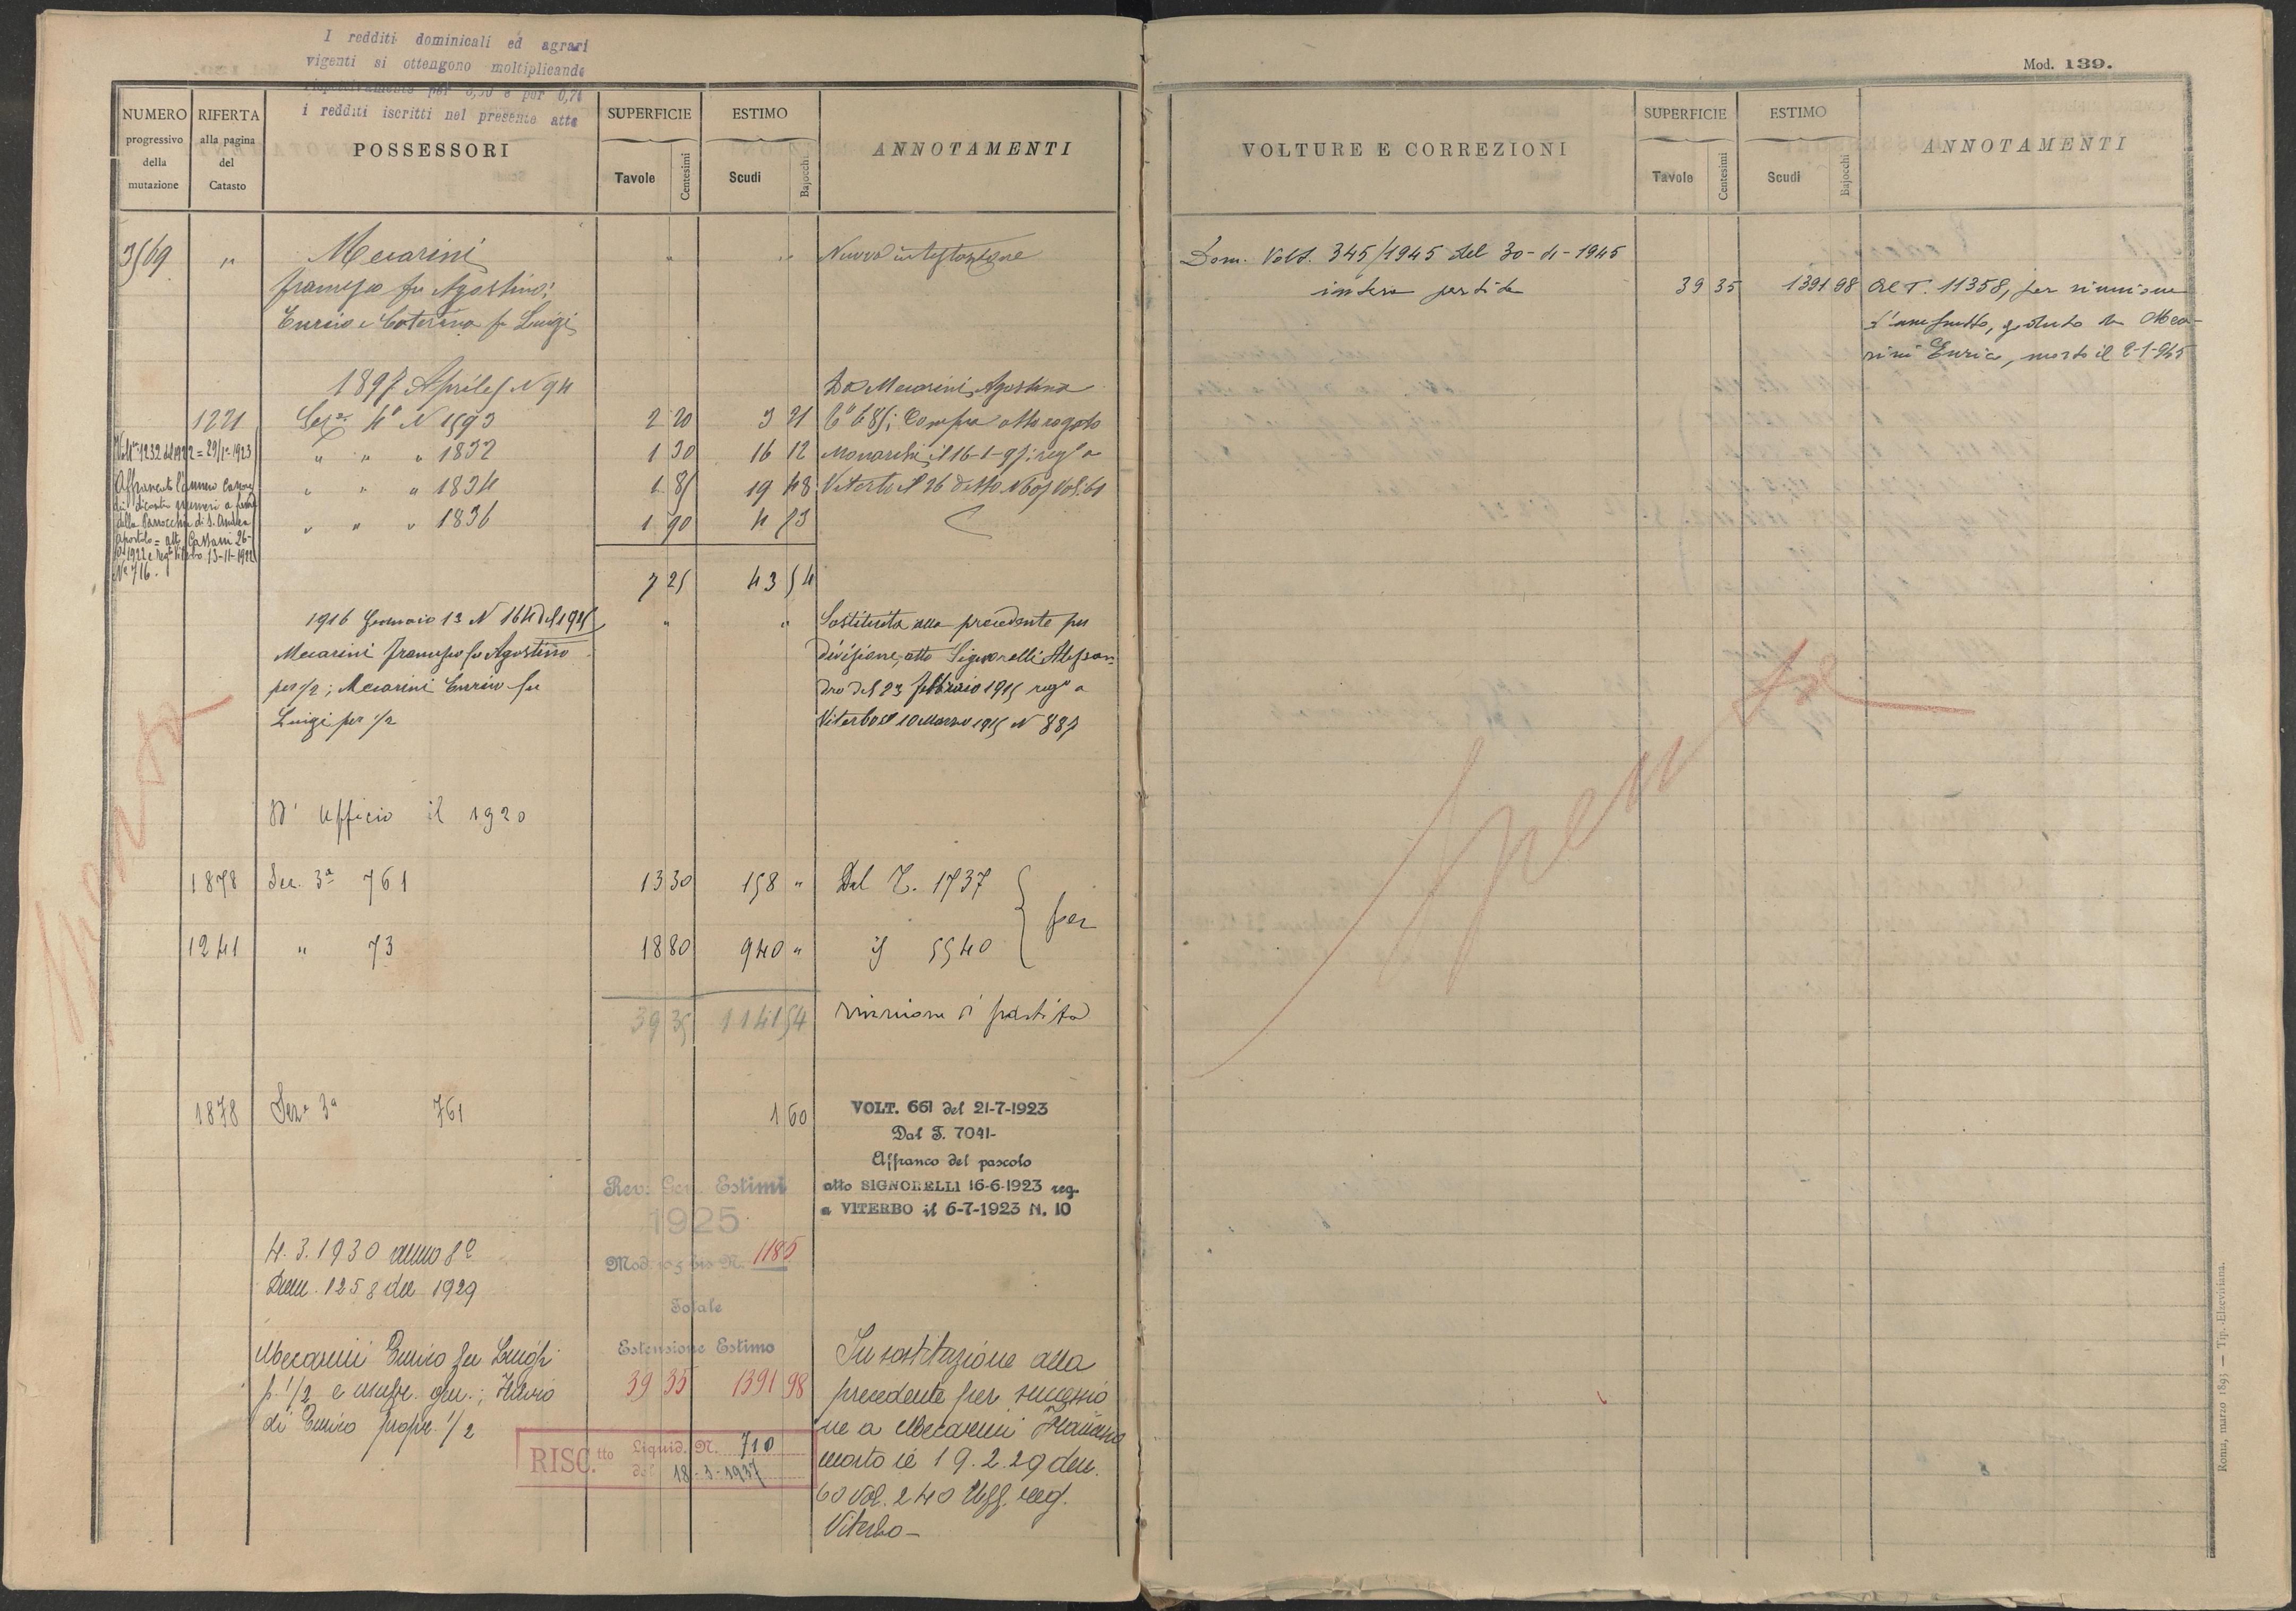 I redditi dominicali ed agrari
vigenti si ottengono moltiplicando
rispettivamente per e per 0,70
i redditi iscritti nel presente atto
NUMERO progressivo della mutazione
RIFERTA alla pagina del Catasto
POSSESSORI
SUPERFICIE
Tavole Centesimi
ESTIMO
Scudi Bajocchi
ANNOTAMENTI
3569 " Mecarini " " Nuova intestazione
Francesco fu Agostino;
Enrico e Caterina fu Luigi
1897 Aprile 5 N 94 Da Mecarini Agostino
1221 Sez. 4a N 1593 2 20 3 21 Ta 685; Compra atto rogato
" " " 1832 1 30 16 12 Monarchi il 16-1-97; reg a
" " " 1834 1 85 19 48 Viterbo il 26 detto N 605 Vol. 61
" " " 1836 1 90 4 73
7 25 43 54
Volt. 1232 del 1922 = 29/1-1923
Affrancato l'annuo canone
di numeri a favore
della Parrocchia di S. Andrea
Apostolo = atto Cassani 26-
1922 e reg. Viterbo 13-11-1922
No 716.
1916 Gennaio 13 N 164 del 1915 " " Sostituita alla precedente per
Mecarini Francesco fu Agostino divisione, atto Signorelli Alessan-
per 1/2; Mecarini Enrico fu dro del 23 febbraio 1915 reg a
Luigi per 1/2 Viterbo il 10 Marzo 1915 N 887
D' Ufficio il 1920
1878 Sec. 3a 761 13 30 158 " Dal T. 1737
1241 " 73 18 80 940 " 5540
per
39 35 1141 54 riunione di partita
1878 Sez. 3a 761 1 60
VOLT. 661 del 21-7-1923
Dal T. 7041-
Affranco del pascolo
atto SIGNORELLI 16-6-1923 reg.
a VITERBO il 6-7-1923 N. 10
Rev: Gen. Estimi
1925
Mod. 105 bis N. 1185
4. 3. 1930 anno 8o
Dem. 1258 del 1929
Totale
Estensione Estimo
39 35 1391 98
Mecarini Enrico fu Luigi
p. 1/2 e usufr. gen.; Flavio
di Enrico propr. 1/2
In sostituzione alla
precedente per successio
ne a Mecarini Francesco
morto il 19.2.29 den.
60 vol. 240 Uff. reg.
Viterbo-
RISC.tto Liquid. N. 710
del 18-3-1937
spenta
Mod. 139.
VOLTURE E CORREZIONI
SUPERFICIE
Tavole Centesimi
ESTIMO
Scudi Bajocchi
ANNOTAMENTI
Dom. Volt. 345/1945 del 30-4-1945
intera partita 39 35 1391 98 Al T. 11358, per riunione
d'usufrutto, goduto da Meca-
rini Enrico, morto il 2-1-945
Spenta
Roma, marzo 1895 — Tip. Elzeviriana.